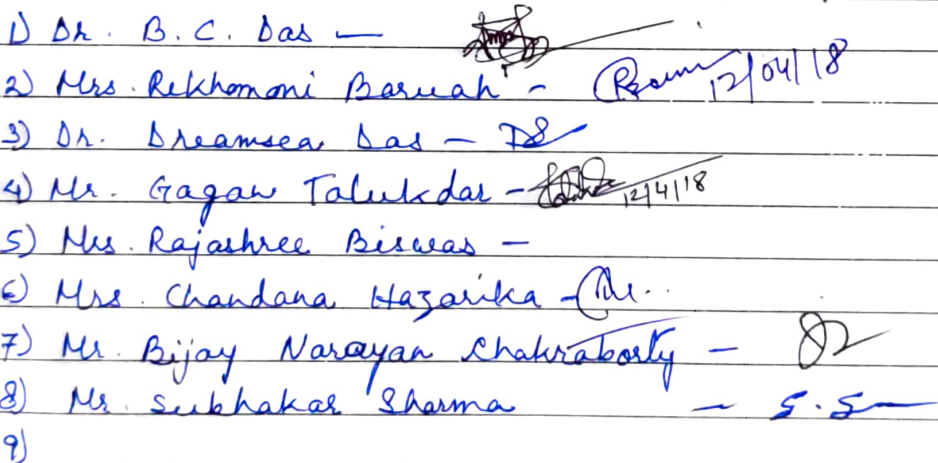 1) Dr. B. C. Das —
2) Mrs. Rekhamoni Baruah - 12/04/18
3) Dr. Dreamsea Das — DS
4) Mr. Gagan Talukdar - 12/4/18
5) Mrs. Rajashree Biswas —
6) Mrs. Chandana Hazarika -
7) Mr. Bijay Narayan Chakraborty —
8) Mr. Subhakar Sharma — S.S
9)